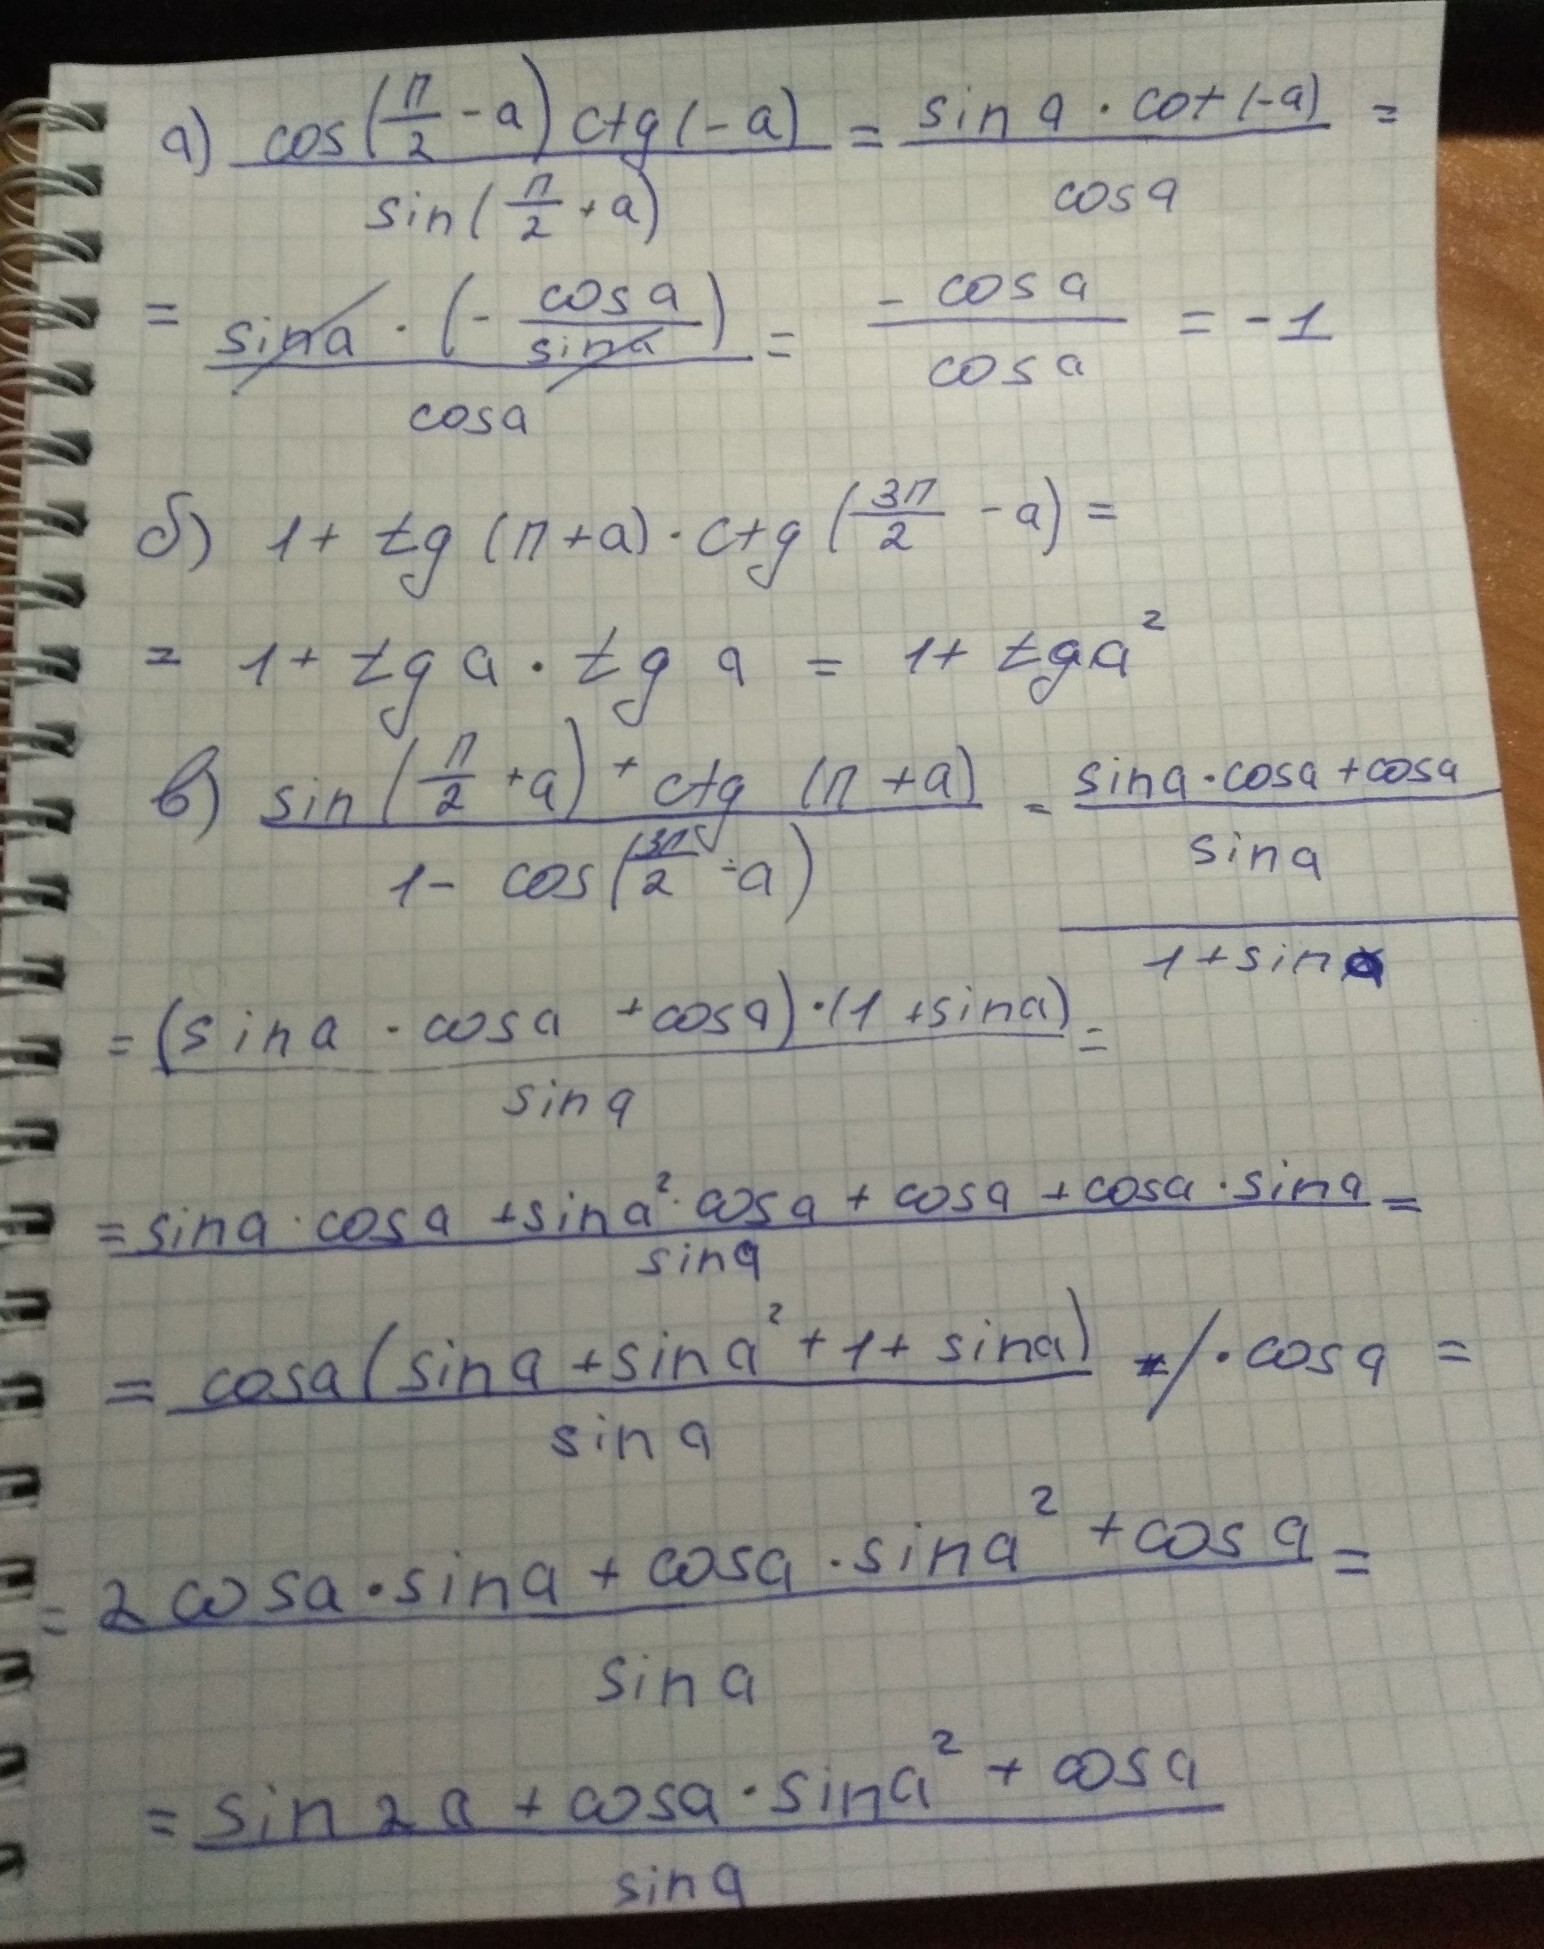 а) cos(π/2 - a) ctg(-a) / sin(π/2 + a) = sin a · cot(-a) / cos a =
= sin a · (- cos a / sin a) / cos a = - cos a / cos a = -1
б) 1 + tg (π + a) · ctg (3π/2 - a) =
= 1 + tg a · tg a = 1 + tg a²
в) sin(π/2 + a) + ctg (π + a) / 1 - cos(3π/2 - a) = sin a · cos a + cos a / sin a / 1 + sin a
= (sin a · cos a + cos a) · (1 + sin a) / sin a =
= sin a · cos a + sin a² · cos a + cos a + cos a · sin a / sin a =
= cos a (sin a + sin a² + 1 + sin a) / sin a / · cos a =
= 2 cos a · sin a + cos a · sin a² + cos a / sin a =
= sin 2 a + cos a · sin a² + cos a / sin a